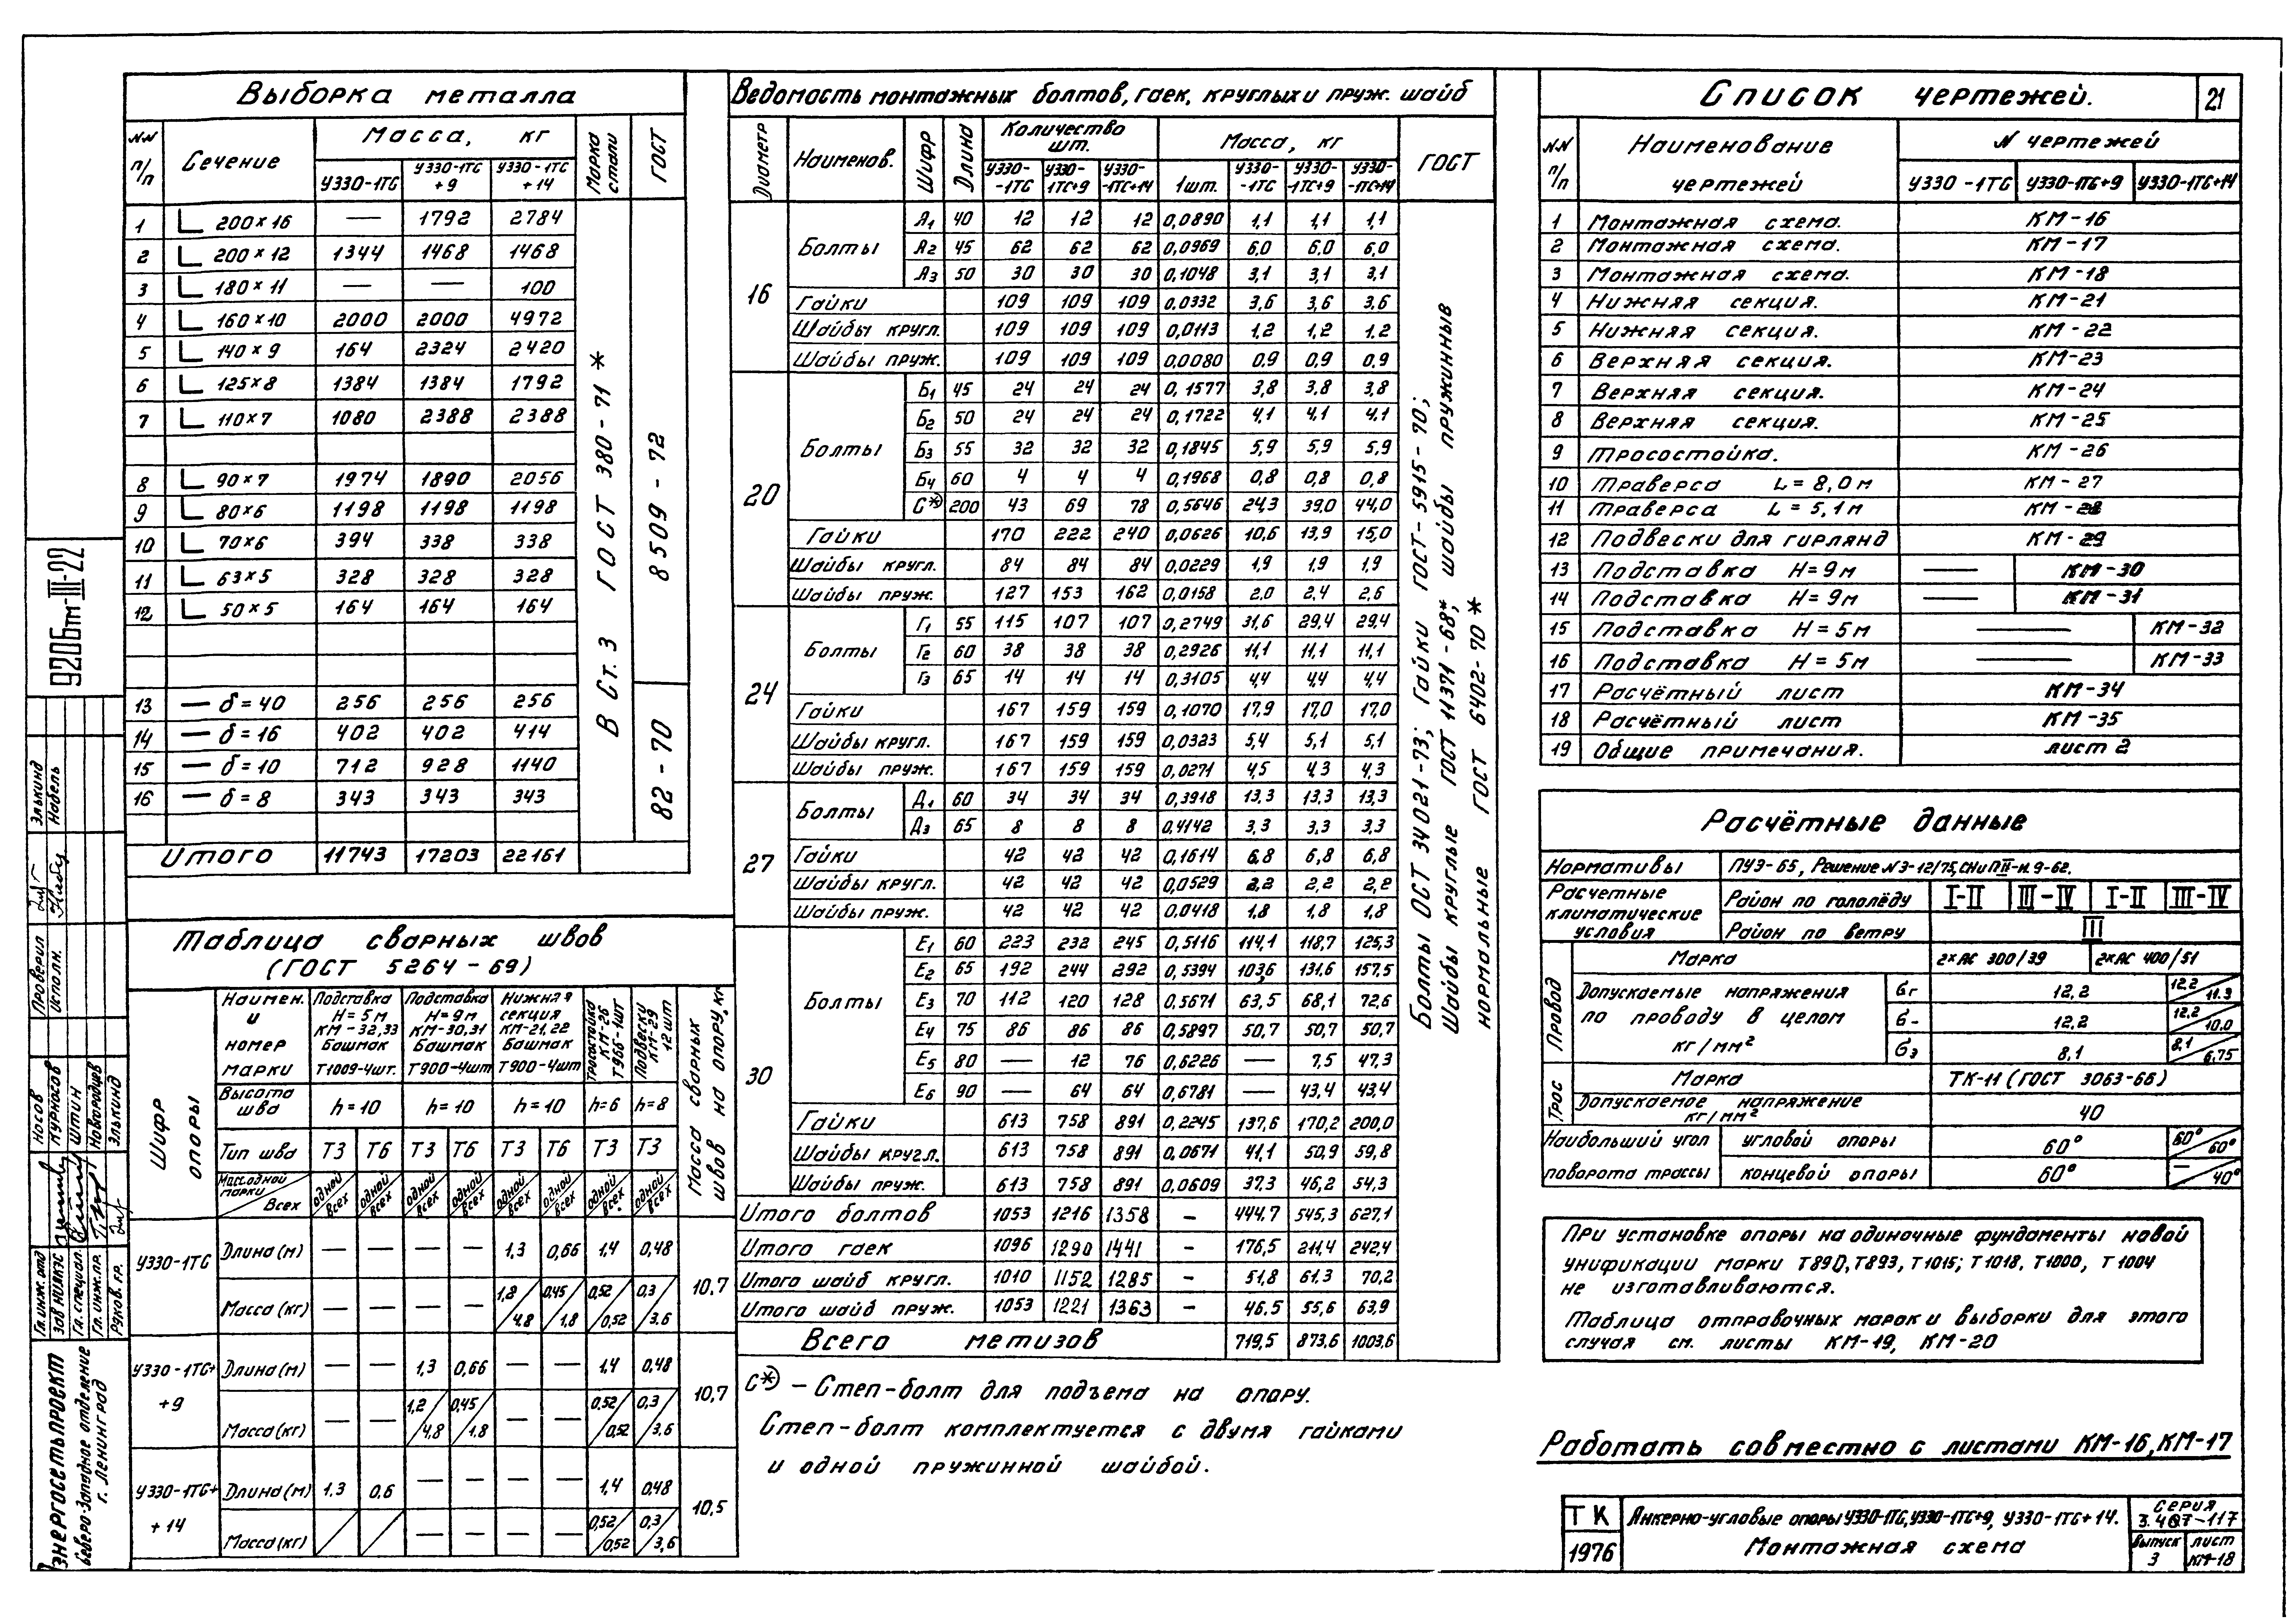 Выборка металла
NN п/п Сечение Масса, кг Марка стали ГОСТ
У330-1ТС У330-1ТС +9 У330-1ТС +14
1 L 200×16 — 1792 2784
2 L 200×12 1344 1468 1468
3 L 180×11 — — 100
4 L 160×10 2000 2000 4972
5 L 140×9 164 2324 2420
6 L 125×8 1384 1384 1792
7 L 110×7 1080 2388 2388
8 L 90×7 1974 1890 2056
9 L 80×6 1198 1198 1198
10 L 70×6 394 338 338
11 L 63×5 328 328 328
12 L 50×5 164 164 164
13 — δ=40 256 256 256
14 — δ=16 402 402 414
15 — δ=10 712 928 1140
16 — δ=8 343 343 343
Итого 11743 17203 22161
В Ст. 3 ГОСТ 380-71*
8509-72
82-70
Таблица сварных швов
(ГОСТ 5264-69)
Шифр опоры
Наимен. и номер марки
Подставка Н=5м КМ-32,33 Башмак Т1009-4шт.
Подставка Н=9м КМ-30,31 Башмак Т900-4шт
Нижняя секция КМ-21,22 Башмак Т900-4шт
Тросостойка КМ-26 Т966-1шт
Подвески КМ-29 12шт
Масса сварных швов на опору, кг
Высота шва h=10 h=10 h=10 h=6 h=8
Тип шва Т3 Т6 Т3 Т6 Т3 Т6 Т3 Т3
Масс.одной марки Всех
одной всех одной всех одной всех одной всех одной всех одной всех одной всех одной всех
У330-1ТС Длина(м) — — — — 1,3 0,66 1,4 0,48
Масса(кг) — — — — 1,8/4,8 0,45/1,8 0,52/0,52 0,3/3,6 10,7
У330-1ТС+ +9 Длина(м) — — 1,3 0,66 — — 1,4 0,48
Масса(кг) — — 1,2/4,8 0,45/1,8 — — 0,52/0,52 0,3/3,6 10,7
У330-1ТС+ +14 Длина(м) 1,3 0,6 — — — — 1,4 0,48
Масса(кг) / / — — — — 0,52/0,52 0,3/3,6 10,5
Ведомость монтажных болтов, гаек, круглых и пруж. шайб
Диаметр Наименов. Шифр Длина Количество шт. Масса, кг ГОСТ
У330--1ТС У330-1ТС+9 У330--1ТС+14 1шт. У330--1ТС У330--1ТС+9 У330--1ТС+14
16
Болты
А1 40 12 12 12 0,0890 1,1 1,1 1,1
А2 45 62 62 62 0,0969 6,0 6,0 6,0
А3 50 30 30 30 0,1048 3,1 3,1 3,1
Гайки 109 109 109 0,0332 3,6 3,6 3,6
Шайбы кругл. 109 109 109 0,0113 1,2 1,2 1,2
Шайбы пруж. 109 109 109 0,0080 0,9 0,9 0,9
20
Болты
Б1 45 24 24 24 0,1577 3,8 3,8 3,8
Б2 50 24 24 24 0,1722 4,1 4,1 4,1
Б3 55 32 32 32 0,1845 5,9 5,9 5,9
Б4 60 4 4 4 0,1968 0,8 0,8 0,8
С*) 200 43 69 78 0,5646 24,3 39,0 44,0
Гайки 170 222 240 0,0626 10,6 13,9 15,0
Шайбы кругл. 84 84 84 0,0229 1,9 1,9 1,9
Шайбы пруж. 127 153 162 0,0158 2,0 2,4 2,6
24
Болты
Г1 55 115 107 107 0,2749 31,6 29,4 29,4
Г2 60 38 38 38 0,2926 11,1 11,1 11,1
Г3 65 14 14 14 0,3105 4,4 4,4 4,4
Гайки 167 159 159 0,1070 17,9 17,0 17,0
Шайбы кругл. 167 159 159 0,0323 5,4 5,1 5,1
Шайбы пруж. 167 159 159 0,0271 4,5 4,3 4,3
27
Болты
Д1 60 34 34 34 0,3918 13,3 13,3 13,3
Д3 65 8 8 8 0,4142 3,3 3,3 3,3
Гайки 42 42 42 0,1614 6,8 6,8 6,8
Шайбы кругл. 42 42 42 0,0529 2,2 2,2 2,2
Шайбы пруж. 42 42 42 0,0418 1,8 1,8 1,8
30
Болты
Е1 60 223 232 245 0,5116 114,1 118,7 125,3
Е2 65 192 244 292 0,5394 103,6 131,6 157,5
Е3 70 112 120 128 0,5671 63,5 68,1 72,6
Е4 75 86 86 86 0,5897 50,7 50,7 50,7
Е5 80 — 12 76 0,6226 — 7,5 47,3
Е6 90 — 64 64 0,6781 — 43,4 43,4
Гайки 613 758 891 0,2245 137,6 170,2 200,0
Шайбы кругл. 613 758 891 0,0671 41,1 50,9 59,8
Шайбы пруж. 613 758 891 0,0609 37,3 46,2 54,3
Итого болтов 1053 1216 1358 - 444,7 545,3 627,1
Итого гаек 1096 1290 1441 - 176,5 211,4 242,4
Итого шайб кругл. 1010 1152 1285 - 51,8 61,3 70,2
Итого шайб пруж. 1053 1221 1363 - 46,5 55,6 63,9
Всего метизов 719,5 873,6 1003,6
Болты ОСТ 34021-73; Гайки ГОСТ-5915-70;
Шайбы круглые ГОСТ 11371-68*; шайбы пружинные
нормальные ГОСТ 6402-70*
С*) – Степ-болт для подъема на опору.
Степ-болт комплектуется с двумя гайками
и одной пружинной шайбой.
Список чертежей. 21
NN п/п Наименование чертежей N чертежей
У330-1ТС У330-1ТС+9 У330-1ТС+14
1 Монтажная схема. КМ-16
2 Монтажная схема. КМ-17
3 Монтажная схема. КМ-18
4 Нижняя секция. КМ-21
5 Нижняя секция. КМ-22
6 Верхняя секция. КМ-23
7 Верхняя секция. КМ-24
8 Верхняя секция. КМ-25
9 Тросостойка. КМ-26
10 Траверса L=8,0м КМ-27
11 Траверса L=5,1м КМ-28
12 Подвески для гирлянд КМ-29
13 Подставка Н=9м — КМ-30
14 Подставка Н=9м — КМ-31
15 Подставка Н=5м — КМ-32
16 Подставка Н=5м — КМ-33
17 Расчётный лист КМ-34
18 Расчётный лист КМ-35
19 Общие примечания. лист 2
Расчётные данные
Нормативы ПУЭ-65, Решение №Э-12/75, СНиП II-И.9-62.
Расчетные климатические условия
Район по гололёду I-II III-IV I-II III-IV
Район по ветру III
Провод
Марка 2×АС 300/39 2×АС 400/51
Допускаемые напряжения по проводу в целом кг/мм²
бг 12,2 12,2/11.3
б- 12,2 12,2/10.0
бэ 8,1 8,1/6,75
Трос
Марка ТК-11 (ГОСТ 3063-66)
Допускаемое напряжение кг/мм² 40
Наибольший угол поворота трассы
угловой опоры 60° 60°/60°
концевой опоры 60° —/40°
При установке опоры на одиночные фундаменты новой
унификации марки Т890, Т893, Т1015; Т1018, Т1000, Т1004
не изготавливаются.
Таблица отправочных марок и выборки для этого
случая см. листы КМ-19, КМ-20
Работать совместно с листами КМ-16, КМ-17
ТК 1976
Анкерно-угловые опоры У330-1ТС, У330-1ТС+9, У330-1ТС+14.
Монтажная схема
Серия 3.407-117
Выпуск 3
лист КМ-18
9206тм-III-22
Энергосетьпроект
Северо-Западное отделение
г. Ленинград
Гл. инж. отд Носов
Зав НИЛКЭС Курносов
Гл. специал. Штин
Гл. инж. пр. Новгородцев
Руков. гр. Элькинд
Проверил Элькинд
Исполн. Нобель